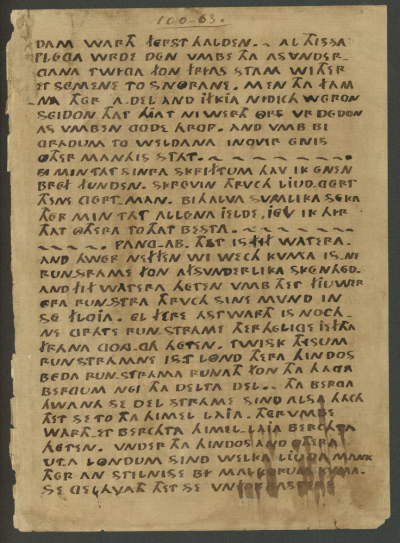 100-63.
DAM WARTH FERST HALDEN.~ AL THISSA
PLEGA WRDE DEN VMBE THA ASVNDER-
GANA TWIGA FON FRYAS STAM WITHER
ET SEMENE TO SNORANE. MEN THA FAM
NA THER A-DEL AND
SEIDON THAT HIAT NI WERE
AS VMBEN GODE HROP. AND VMB BI
GRADUM TO WELDANA INOVIR ENIS
OTHER MANNIS STAT.~~~~~~~~
BI MIN TAT SINRA SKRIFTUM HAV IK ENEN
BREF FUNDEN. SKREVIN THRVCH LIUDGERT
THENE GERT.MAN. BIHALVA SVMLIKA SEKA
THER MIN TAT ALLENA IELDE, IEV IK HIR
THAT OTHERA TO THAT BESTA.~~~~~~
~~~~. PANG-AB. THET IS FIF WATERA.
AND HWER NEFFEN WI WECH KVMA IS NE
RUNSTRAME FON AFSVNDERLIKA SKENHED.
AND FIF WATERA HETEN VMB THET FIUWER
ORA RUNSTRA THRVCH SINE MVND IN
SE FLOIA. EL FERE ASTWARTH IS NOCH
NE GRATE RUNSTRAME THER HELIGE IEFTHA
FRANA GONG-GA HETEN. TWISK THISUM
RUNSTRAMNE IS.T LOND THERA HINDOS
BEDA RUNSTRAMA RUNATH FON THA HAGA
BERGUM NEI THA DELTA DEL.~ THA BERGA
HWANA SE DEL STRAME SIND ALSA HACH
THET SE TO THA HIMEL LAIA. THERVMBE
WARTH-ET BERCHTA HIMEL-LAIA BERCHTA
HETEN. VNDER THA HINDOS AND OTHERA
UT.A LONDUM SIND WELKA LIUDA MANK
THER AN STILNISE BI MALKORUM KVMA.
SE GELAVATH THET SE